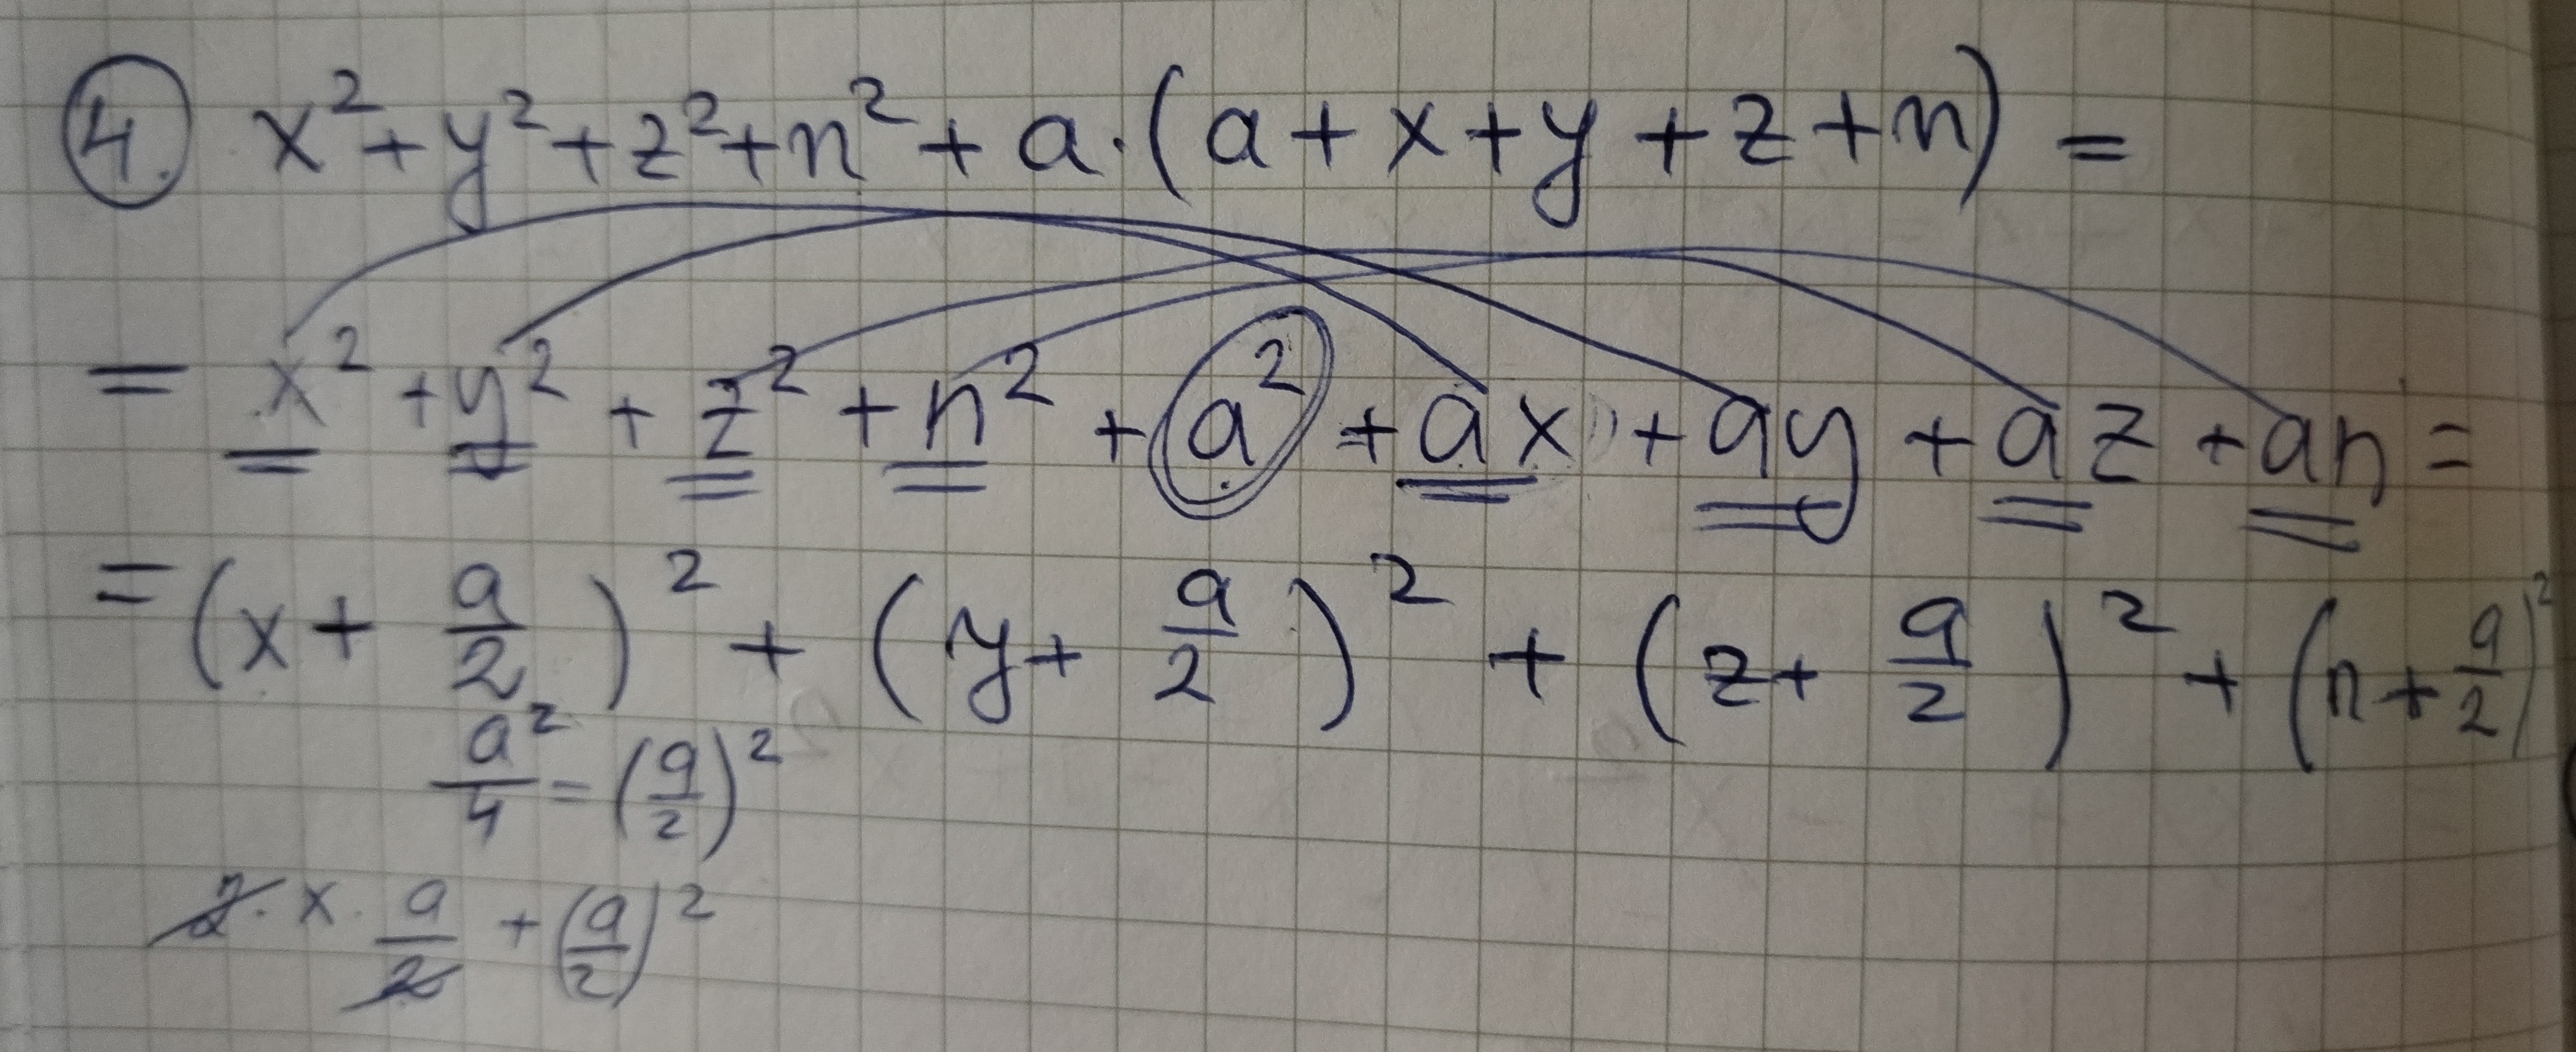 4. x²+y²+z²+n²+a·(a+x+y+z+n)=
= x²+y²+z²+n²+a²+ax+ay+az+an=
=(x+a/2)²+(y+a/2)²+(z+a/2)²+(n+a/2)²
a²/4=(a/2)²
2·x·a/2+(a/2)²